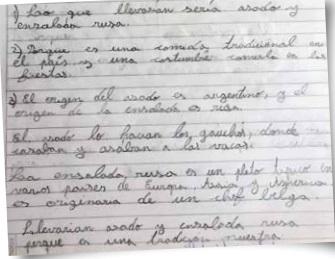 1) Lo que llevarian seria asado y
ensalada rusa.
2) Porque es una comida tradicional en
el país y una costumbre comerla en las
fiestas.
3) El origen del asado es argentino, y el
origen de la ensalada es rusa.
El asado lo hacian los gauchos, donde
cazaban y asaban a las vacas.
La ensalada rusa es un plato tipico en
varios paises de Europa, Asia y America
es originaria de un chef belga.
Llevarian asado y ensalada rusa
porque es una tradicion nuestra